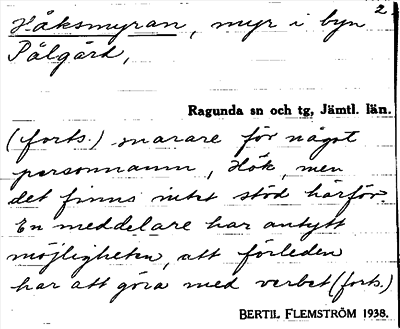 2.
Håksmyran, myr i byn
Pålgård,
Ragunda sn och tg, Jämtl. län.
(forts.) snarare för något
personnamn, Hök, men
det finns intet stöd härför.
En meddelare har antytt
möjligheten, att förleden
har att göra med verbet (forts.)
BERTIL FLEMSTRÖM 1938.